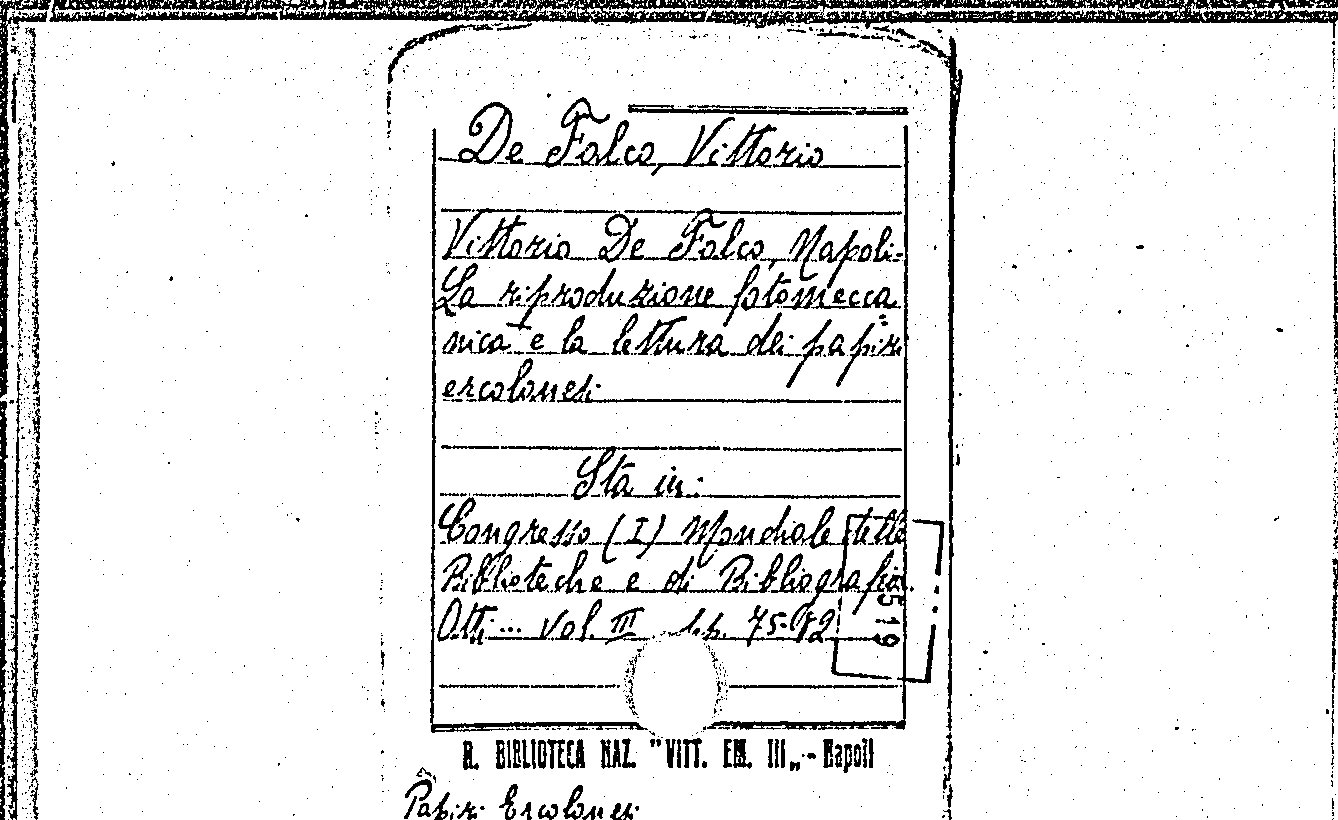 De Falco, Vittorio
Vittorio De Falco, Napoli-
La riproduzione fotomecca
nica e la lettura dei papiri
ercolanesi
Sta in:
Congresso (I) Mondiale delle
Biblioteche e di Bibliografia.
Atti... vol. III pp. 75-82
519
R. BIBLIOTECA NAZ. "VITT. EM. III„ - Napoli
Papiri Ercolanesi